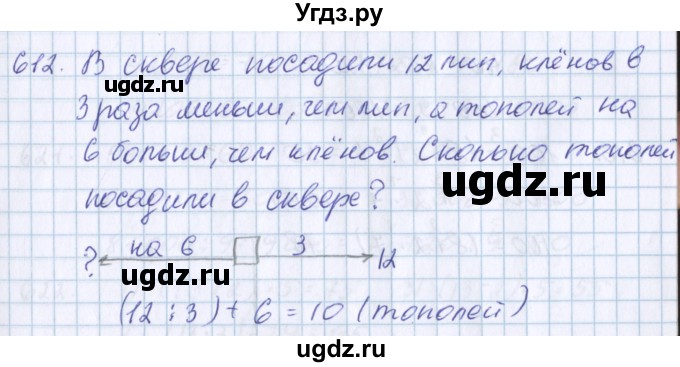 Угдз.ру
612. В сквере посадили 12 лип, клёнов в
3 раза меньш, чем лип, а тополей на
6 больши, чем клёнов. Сколько тополей
посадили в сквере?
? на 6 3 12
(12 : 3) + 6 = 10 (тополей)
ugdz.ru
ugdz.ru
ugdz.ru
ugdz.ru
ugdz.ru